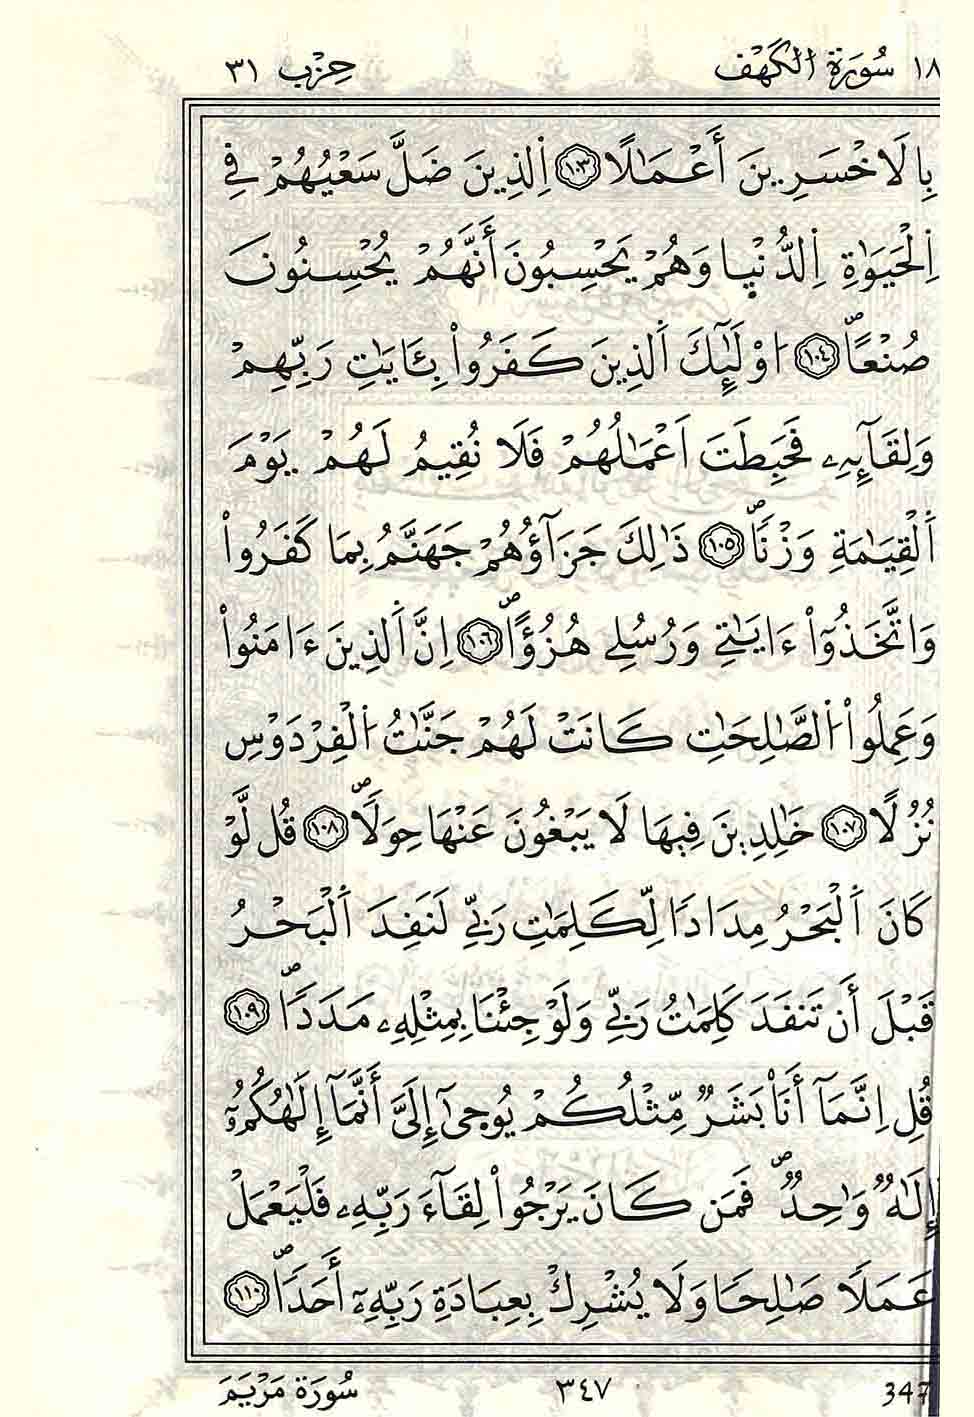 ١٨ سُورَةُ الْكَهْفِ حِزْب ٣١
بِالَاخْسَرِينَ أَعْمَٰلًا ١٠٣ اِ۬لذِينَ ضَلَّ سَعْيُهُمْ فِے
اِ۬لْحَيَوٰةِ اِ۬لدُّنْي۪ا وَهُمْ يَحْسِبُونَ أَنَّهُمْ يُحْسِنُونَ
صُنْعاًۖ ١٠٤ ا۟وْلَٰٓئِكَ اَ۬لذِينَ كَفَرُواْ بِـَٔايَٰتِ رَبِّهِمْ
وَلِقَآئِهِۦ فَحَبِطَتَ اَعْمَٰلُهُمْ فَلَا نُقِيمُ لَهُمْ يَوْمَ
اَ۬لْقِيَٰمَةِ وَزْناًۖ ١٠٥ ذَٰلِكَ جَزَآؤُهُمْ جَهَنَّمُ بِمَا كَفَرُواْ
وَاتَّخَذُوٓاْ ءَايَٰتِے وَرُسُلِے هُزُؤاًۖ ١٠٦ اِنَّ اَ۬لذِينَ ءَامَنُواْ
وَعَمِلُواْ اُ۬لصَّٰلِحَٰتِ كَانَتْ لَهُمْ جَنَّٰتُ اُ۬لْفِرْدَوْسِ
نُزُلًا ١٠٧ خَٰلِدِينَ فِيهَا لَا يَبْغُونَ عَنْهَا حِوَلًاۖ ١٠٨ قُل لَّوْ
كَانَ اَ۬لْبَحْرُ مِدَاداً لِّكَلِمَٰتِ رَبِّے لَنَفِدَ اَ۬لْبَحْرُ
قَبْلَ أَن تَنفَدَ كَلِمَٰتُ رَبِّے وَلَوْ جِئْنَا بِمِثْلِهِۦ مَدَداًۖ ١٠٩
قُلِ اِنَّمَآ أَنَا۠ بَشَرٌ مِّثْلُكُمْ يُوح۪يٰٓ إِلَيَّ أَنَّمَآ إِلَٰهُكُمُۥٓ
إِلَٰهٌ وَٰحِدٌۖ فَمَن كَانَ يَرْجُواْ لِقَآءَ رَبِّهِۦ فَلْيَعْمَلْ
عَمَلًا صَٰلِحاً وَلَا يُشْرِكْ بِعِبَادَةِ رَبِّهِۦٓ أَحَداًۖ ١١٠
347 ٣٤٧ سُورَةُ مَرْيَمَ